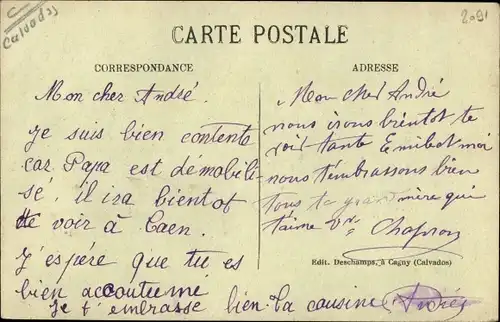 Calvados
2091
CARTE POSTALE
CORRESPONDANCE
Mon cher André.
Je suis bien contente
car Papa est démobili-
sé. il ira bientot
te voir à Caen.
J'espére que tu es
bien accoutume
je t'embrasse bien. ta cousine Andrée
ADRESSE
Mon cher André
nous irons bientot te
voir tante Emile et moi
nous t'embrassons bien
tous ta grand mère qui
t'aime Vve Chapron
Edit. Deschamps, à Cagny (Calvados)